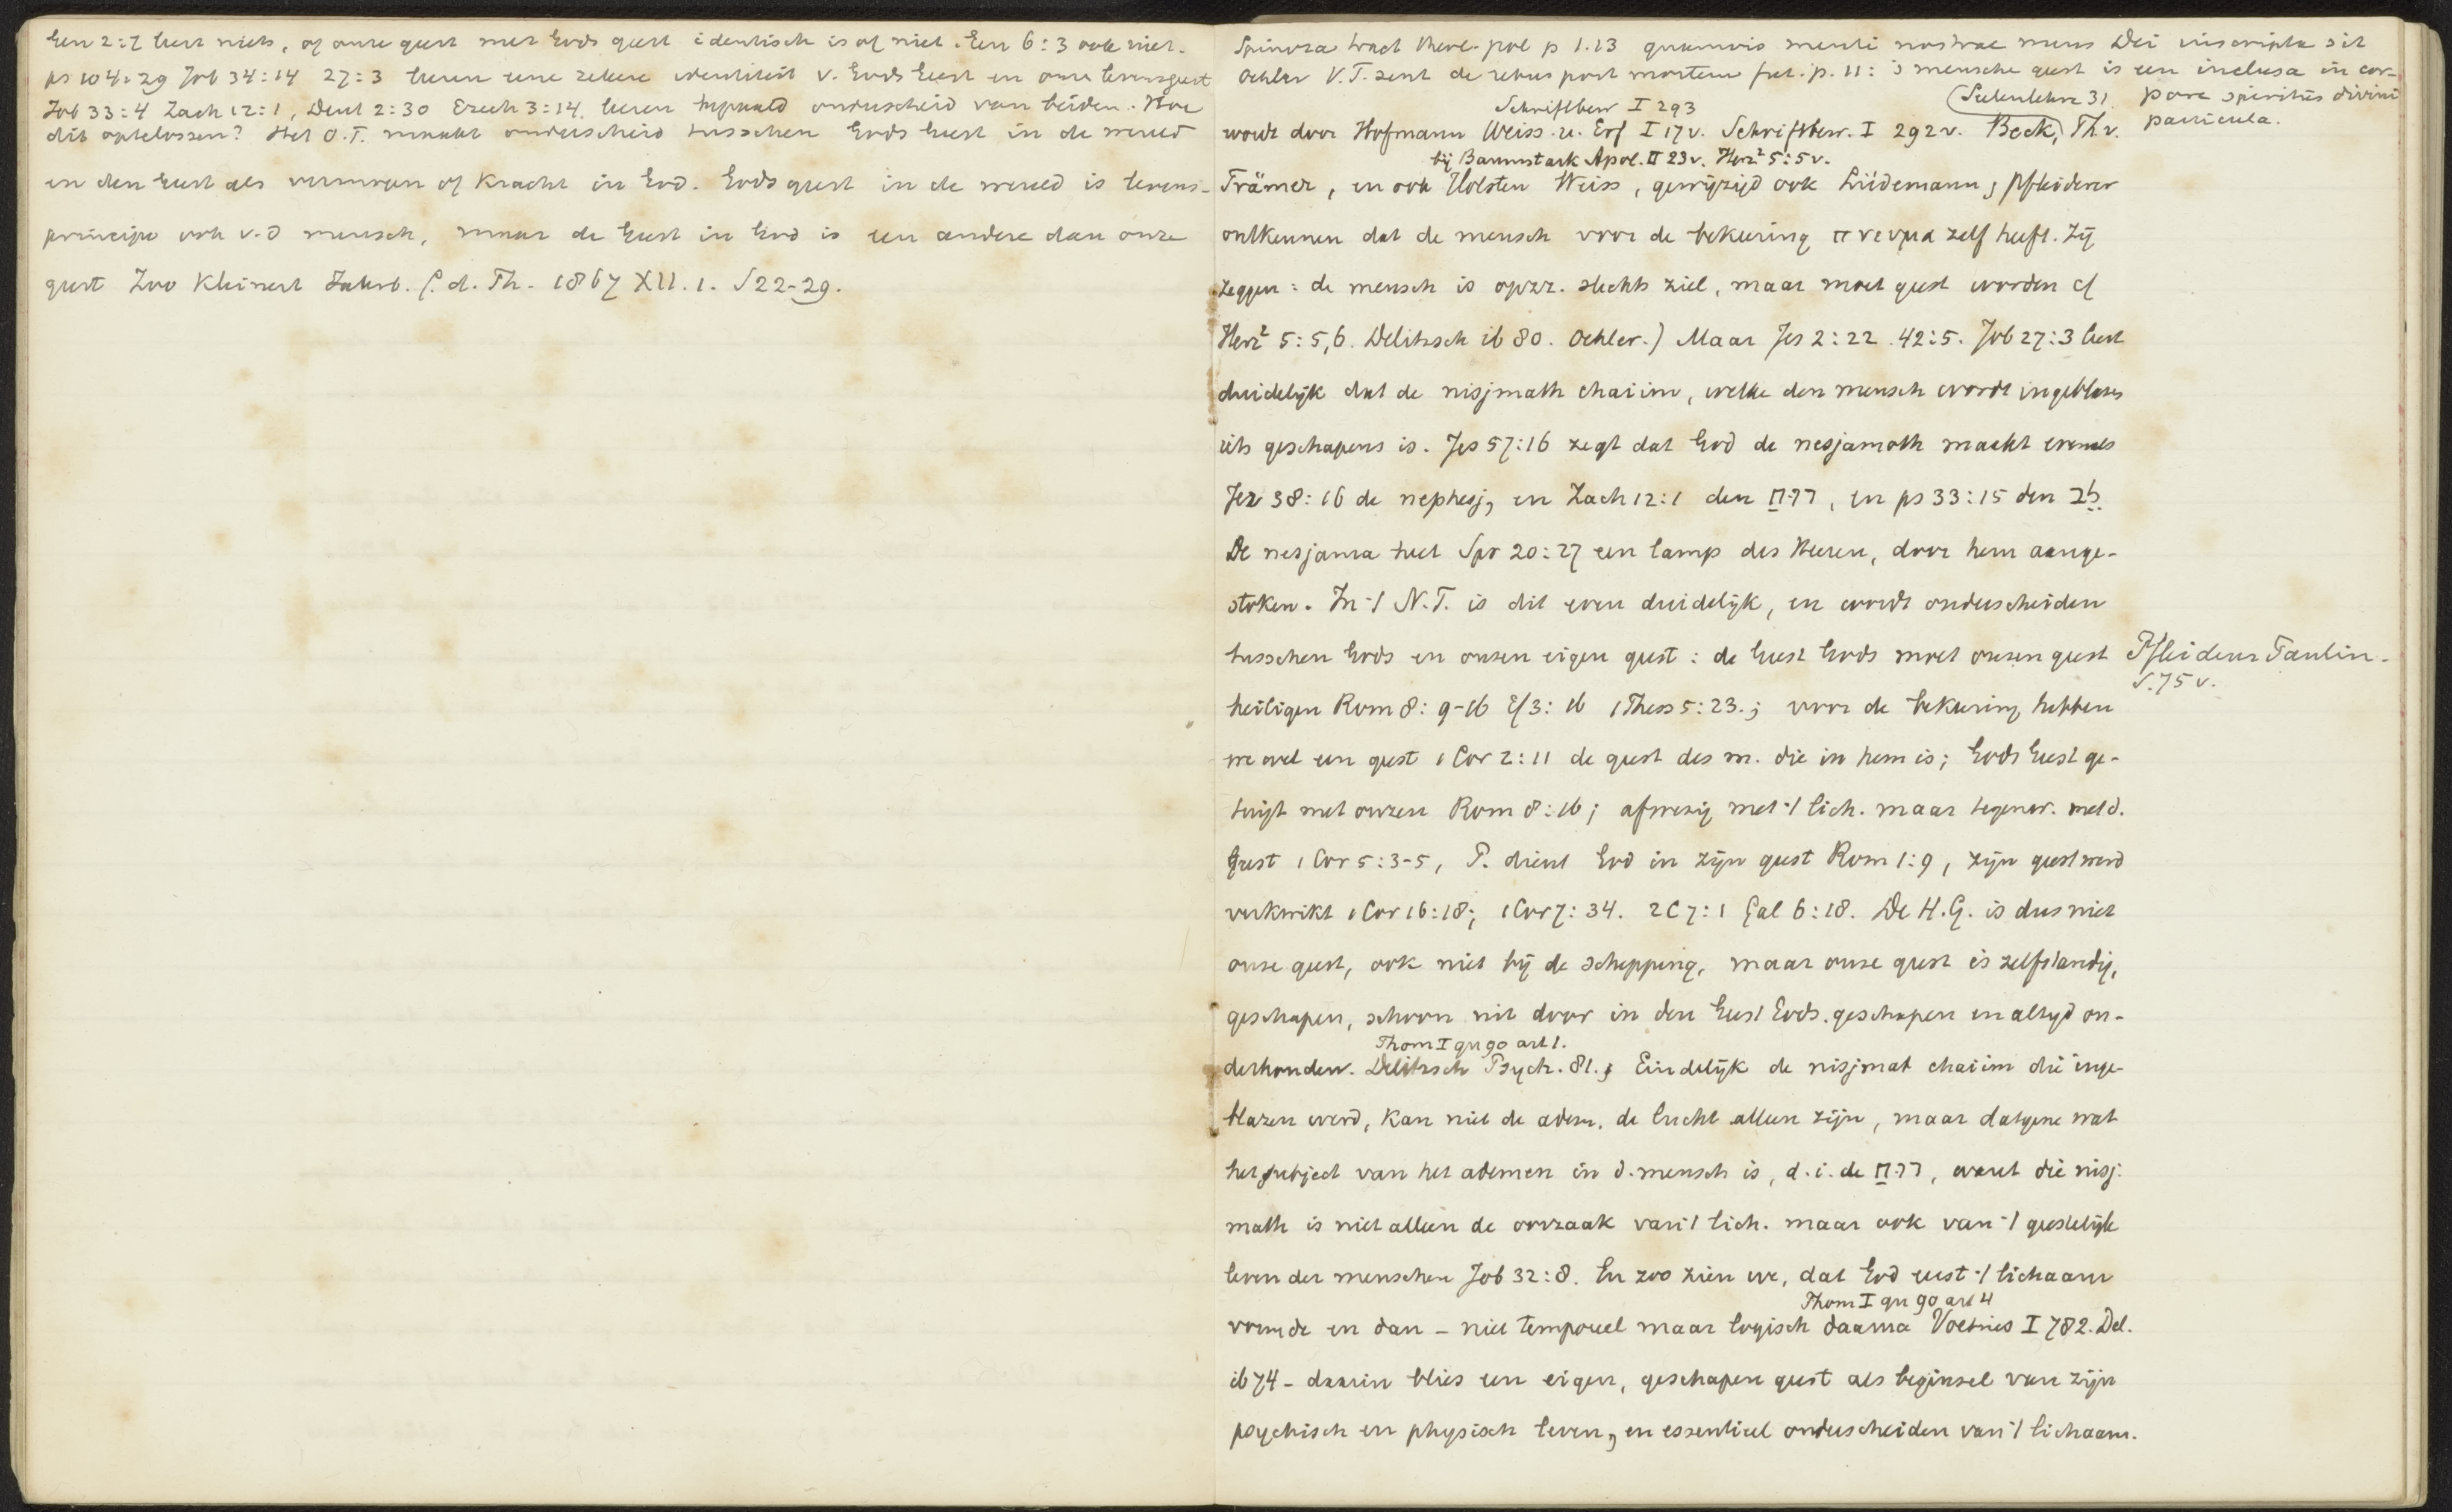 Gen 2:7 leert niets, of onze geest met Gods geest identisch is of niet. Gen 6:3 ook niet.
ps 104:29 Job 34:14 27:3 leeren eene zekere identiteit v. Gods Geest en onze levensgeest
Job 33:4 Zach 12:1, Deut 2:30 Ezech 3:14. leeren bepaald onderscheid van beiden. Hoe
dit optelossen? Het O.T. maakt onderscheid tusschen Gods Geest in de wereld
en den Geest als vermogen of Kracht in God. Gods geest in de wereld is levens-
principe ook v.d mensch, maar de Geest in God is een andere dan onze
geest Zoo Kleinert Jahrb. f. d. Th. 1867 XII. 1. S 22-29.
Spinoza tract theol-pol p 1.13 quamvis menti nostrae mens Dei inscripta sit
Oehler V.T. sent de rebus post mortem fut. p. 11: 's menschen geest is een inclusa in cor-
pore spiritûs divini
particula.
Schriftbew I 293
(Seelenlehre 31)
wordt door Hofmann Weiss. u. Erf I 17 v. Schriftbew. I 292 v. Beck, Th. v.
bij Baumstark Apol. II 23 v. Herz² 5:5 v.
Främer, en ook Holsten Weiss, gewijzigd ook Lüdemann, Pfleiderer
ontkennen dat de mensch voor de bekeering πνευμα zelf heeft. Zij
zeggen: de mensch is opzz. slechts ziel, maar moet geest worden cf
Herz² 5:5,6. Delitzsch ib 80. Oehler.) Maar Jes 2:22. 42:5. Job 27:3 leert
duidelijk dat de nisjmath chaiim, welke den mensch wordt ingeblazen
iets geschapens is. Jes 57:16 zegt dat God de nesjamoth maakt evenals
Jer 38:16 de nephesj, en Zach 12:1 den רוח, en ps 33:15 den לב
De nesjama heet Spr 20:27 een lamp des Heeren, door hem aange-
stoken. In 't N.T. is dit even duidelijk, en wordt onderscheiden
tusschen Gods en onzen eigen geest: de Geest Gods moet onzen geest
Pfleiderer Paulin.
S. 75 v.
heiligen Rom 8:9-16 Ef 3:16 1Thess 5:23.; voor de bekeering hebben
we wel een geest 1 Cor 2:11 de geest des m. die in hem is; Gods Geest ge-
tuigt met onzen Rom 8:16; afwezig met 't lich. maar tegenw. met d.
Geest 1 Cor 5:3-5, P. dient God in zijn geest Rom 1:9, zijn geest werd
verkwikt 1 Cor 16:18; 1 Cor 7:34. 2 C 7:1 Gal 6:18. De H.G. is dus niet
onze geest, ook niet bij de schepping, maar onze geest is zelfstandig,
geschapen, schoon uit door in den Geest Gods. geschapen en altijd on-
Thom I qu 90 art 1.
derhouden. Delitzsch Psych. 81.; Eindelijk de nisjmat chaiim die inge-
blazen werd, kan niet de adem, de lucht alleen zijn, maar datgene wat
het subject van het ademen in d. mensch is, d.i. de רוח, want die nisj-
math is niet alleen de oorzaak van 't lich. maar ook van 't geestelijk
leven der menschen Job 32:8. En zoo zien we, dat God eerst 't lichaam
Thom I qu 90 art 4
vormde en dan - niet temporeel maar logisch daarna Voetius I 782. Del.
ib 74 - daarin blies een eigen, geschapen geest als beginsel van zijn
psychisch en physisch leven, en essentieel onderscheiden van 't lichaam.